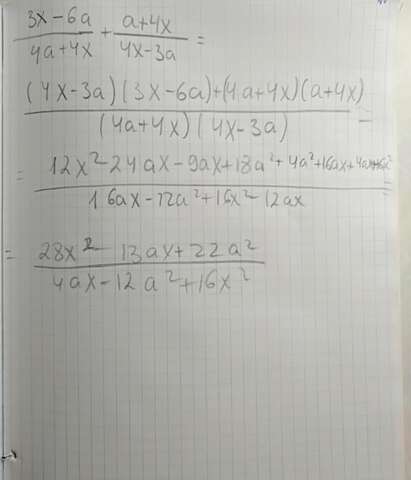 (3x-6a)/(4a+4x) + (a+4x)/(4x-3a) =
((4x-3a)(3x-6a)+(4a+4x)(a+4x))/((4a+4x)(4x-3a)) =
= (12x²-24ax-9ax+18a²+4a²+16ax+4ax+16x²)/(16ax-12a²+16x²-12ax) =
= (28x²-13ax+22a²)/(4ax-12a²+16x²)